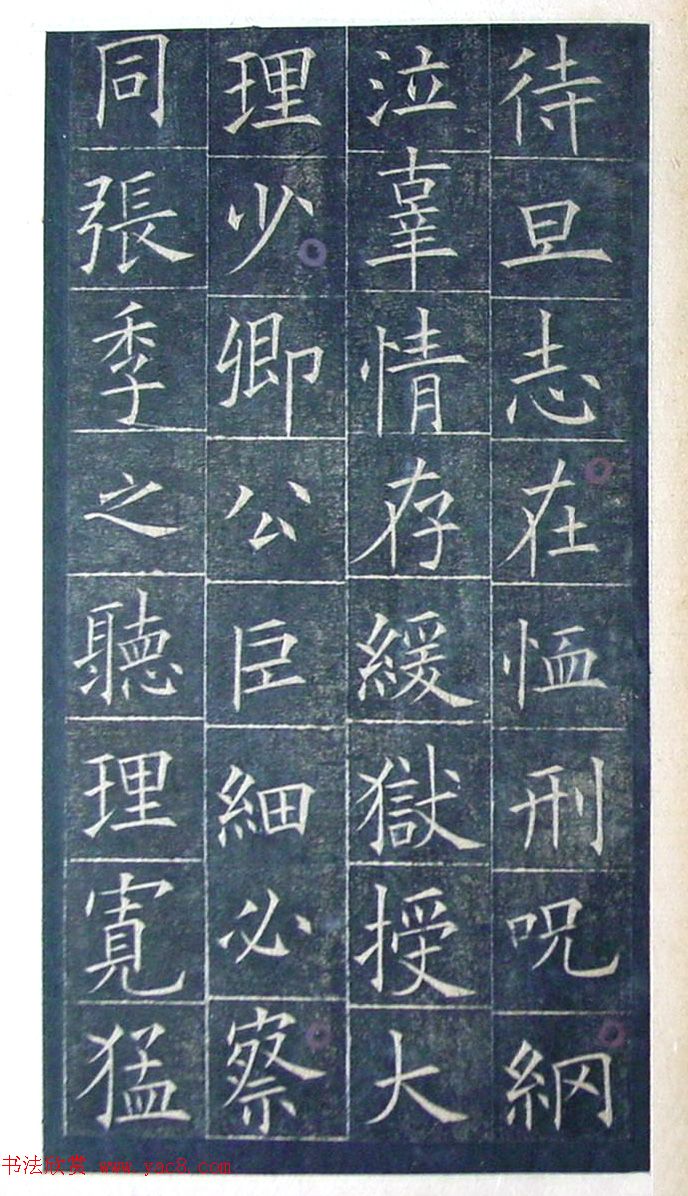 待旦志在恤刑呪網
泣辜情存緩獄授大
理少卿公巨細必察
同張季之聽理寬猛
书法欣赏 www.yac8.com